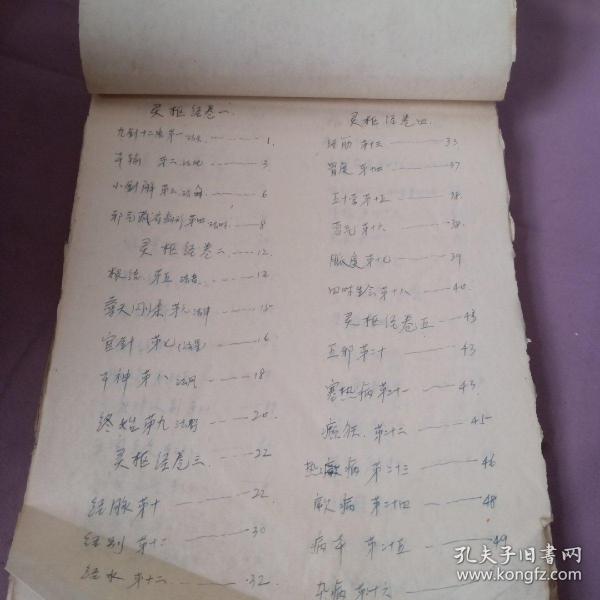 灵枢经卷一
九针十二原第一 法天 1
本输 第二 法地 3
小针解 第三 法人 6
邪气藏府病形第四 法时 8
灵枢经卷二 12
根结 第五 法音 12
寿夭刚柔 第六 法律 15
官针 第七 法星 16
本神 第八 法风 18
终始第九 法野 20
灵枢经卷三 22
经脉第十 22
经别 第十一 30
经水 第十二 32
灵枢经卷四
经筋 第十三 33
骨度 第十四 37
五十营第十五 38
营气 第十六 38
脉度 第十七 39
四时 第十八 40
灵枢经卷五 43
五邪 第二十 43
寒热病第二十一 43
癫狂 第二十二 45
热病 第二十三 46
厥病 第二十四 48
病本 第二十五 49
杂病 第二十六
孔夫子旧书网
www.kongfz.com